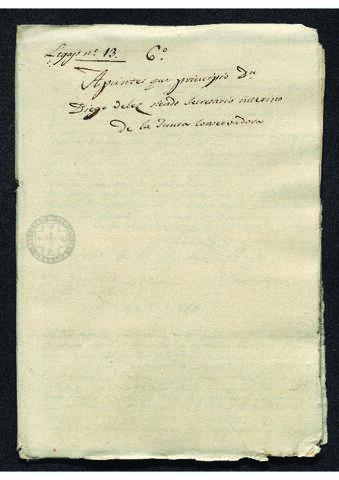 Legajo nº 13. 6º
Apuntes que principió Dn
Diego siendo Secretario interino
de la Junta Conservadora